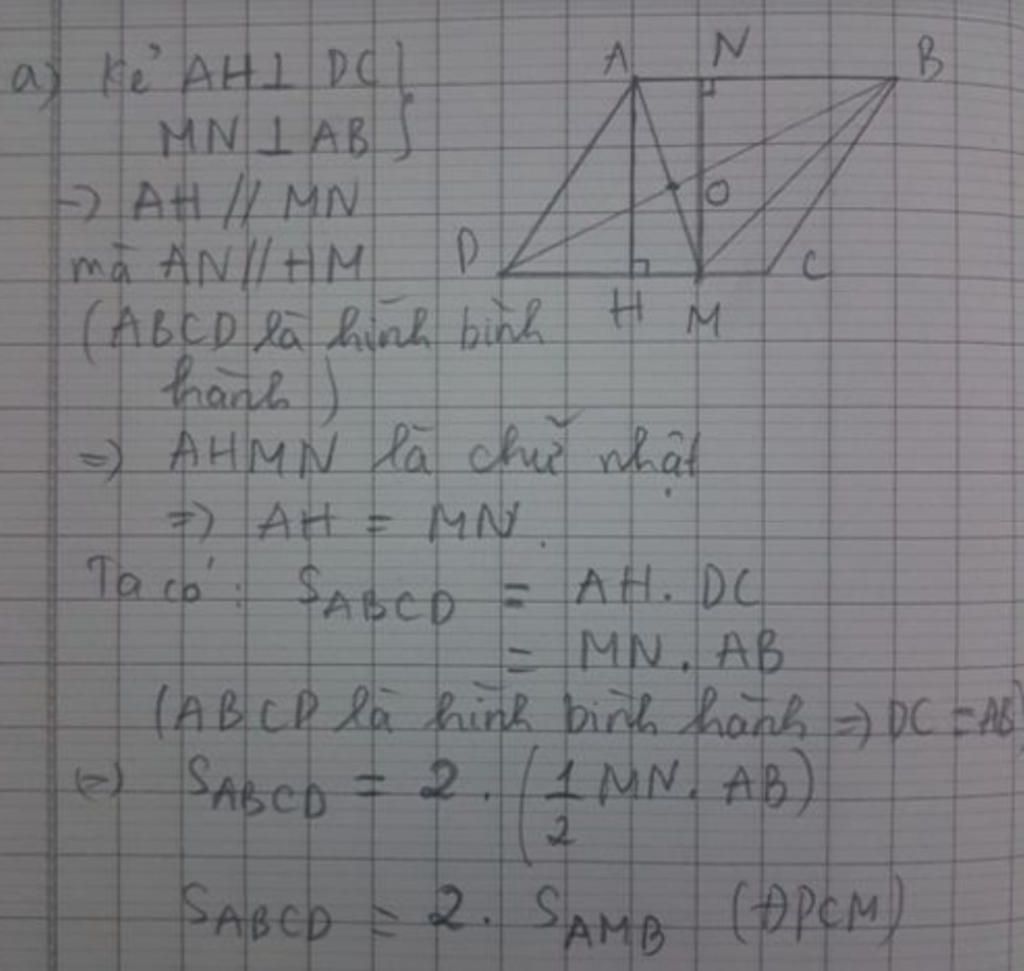 a) Kẻ AH ⊥ DC }
MN ⊥ AB }
→ AH // MN
mà AN // HM
(ABCD là hình bình
hành)
⇒ AHMN là chữ nhật
⇒ AH = MN.
Ta có: S_ABCD = AH. DC
= MN. AB
(ABCD là hình bình hành ⇒ DC = AB)
⇔ S_ABCD = 2. (1/2 MN. AB)
S_ABCD = 2. S_AMB (ĐPCM)
A N B
O
D C
H M